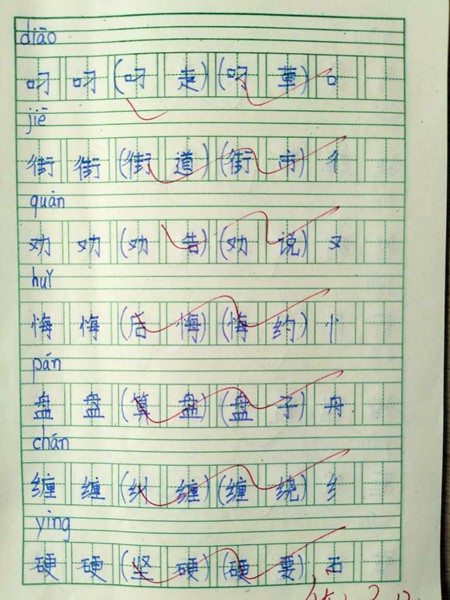 diāo
叼 叼 (叼 走) (叼 董) 口
jiē
街 街 (街 道) (街 市) 彳
quàn
劝 劝 (劝 告) (劝 说) 又
huǐ
悔 悔 (后 悔) (悔 约) 忄
pán
盘 盘 (算 盘) (盘 子) 舟
chán
缠 缠 (纠 缠) (缠 绕) 纟
yìng
硬 硬 (坚 硬) (硬 要) 石